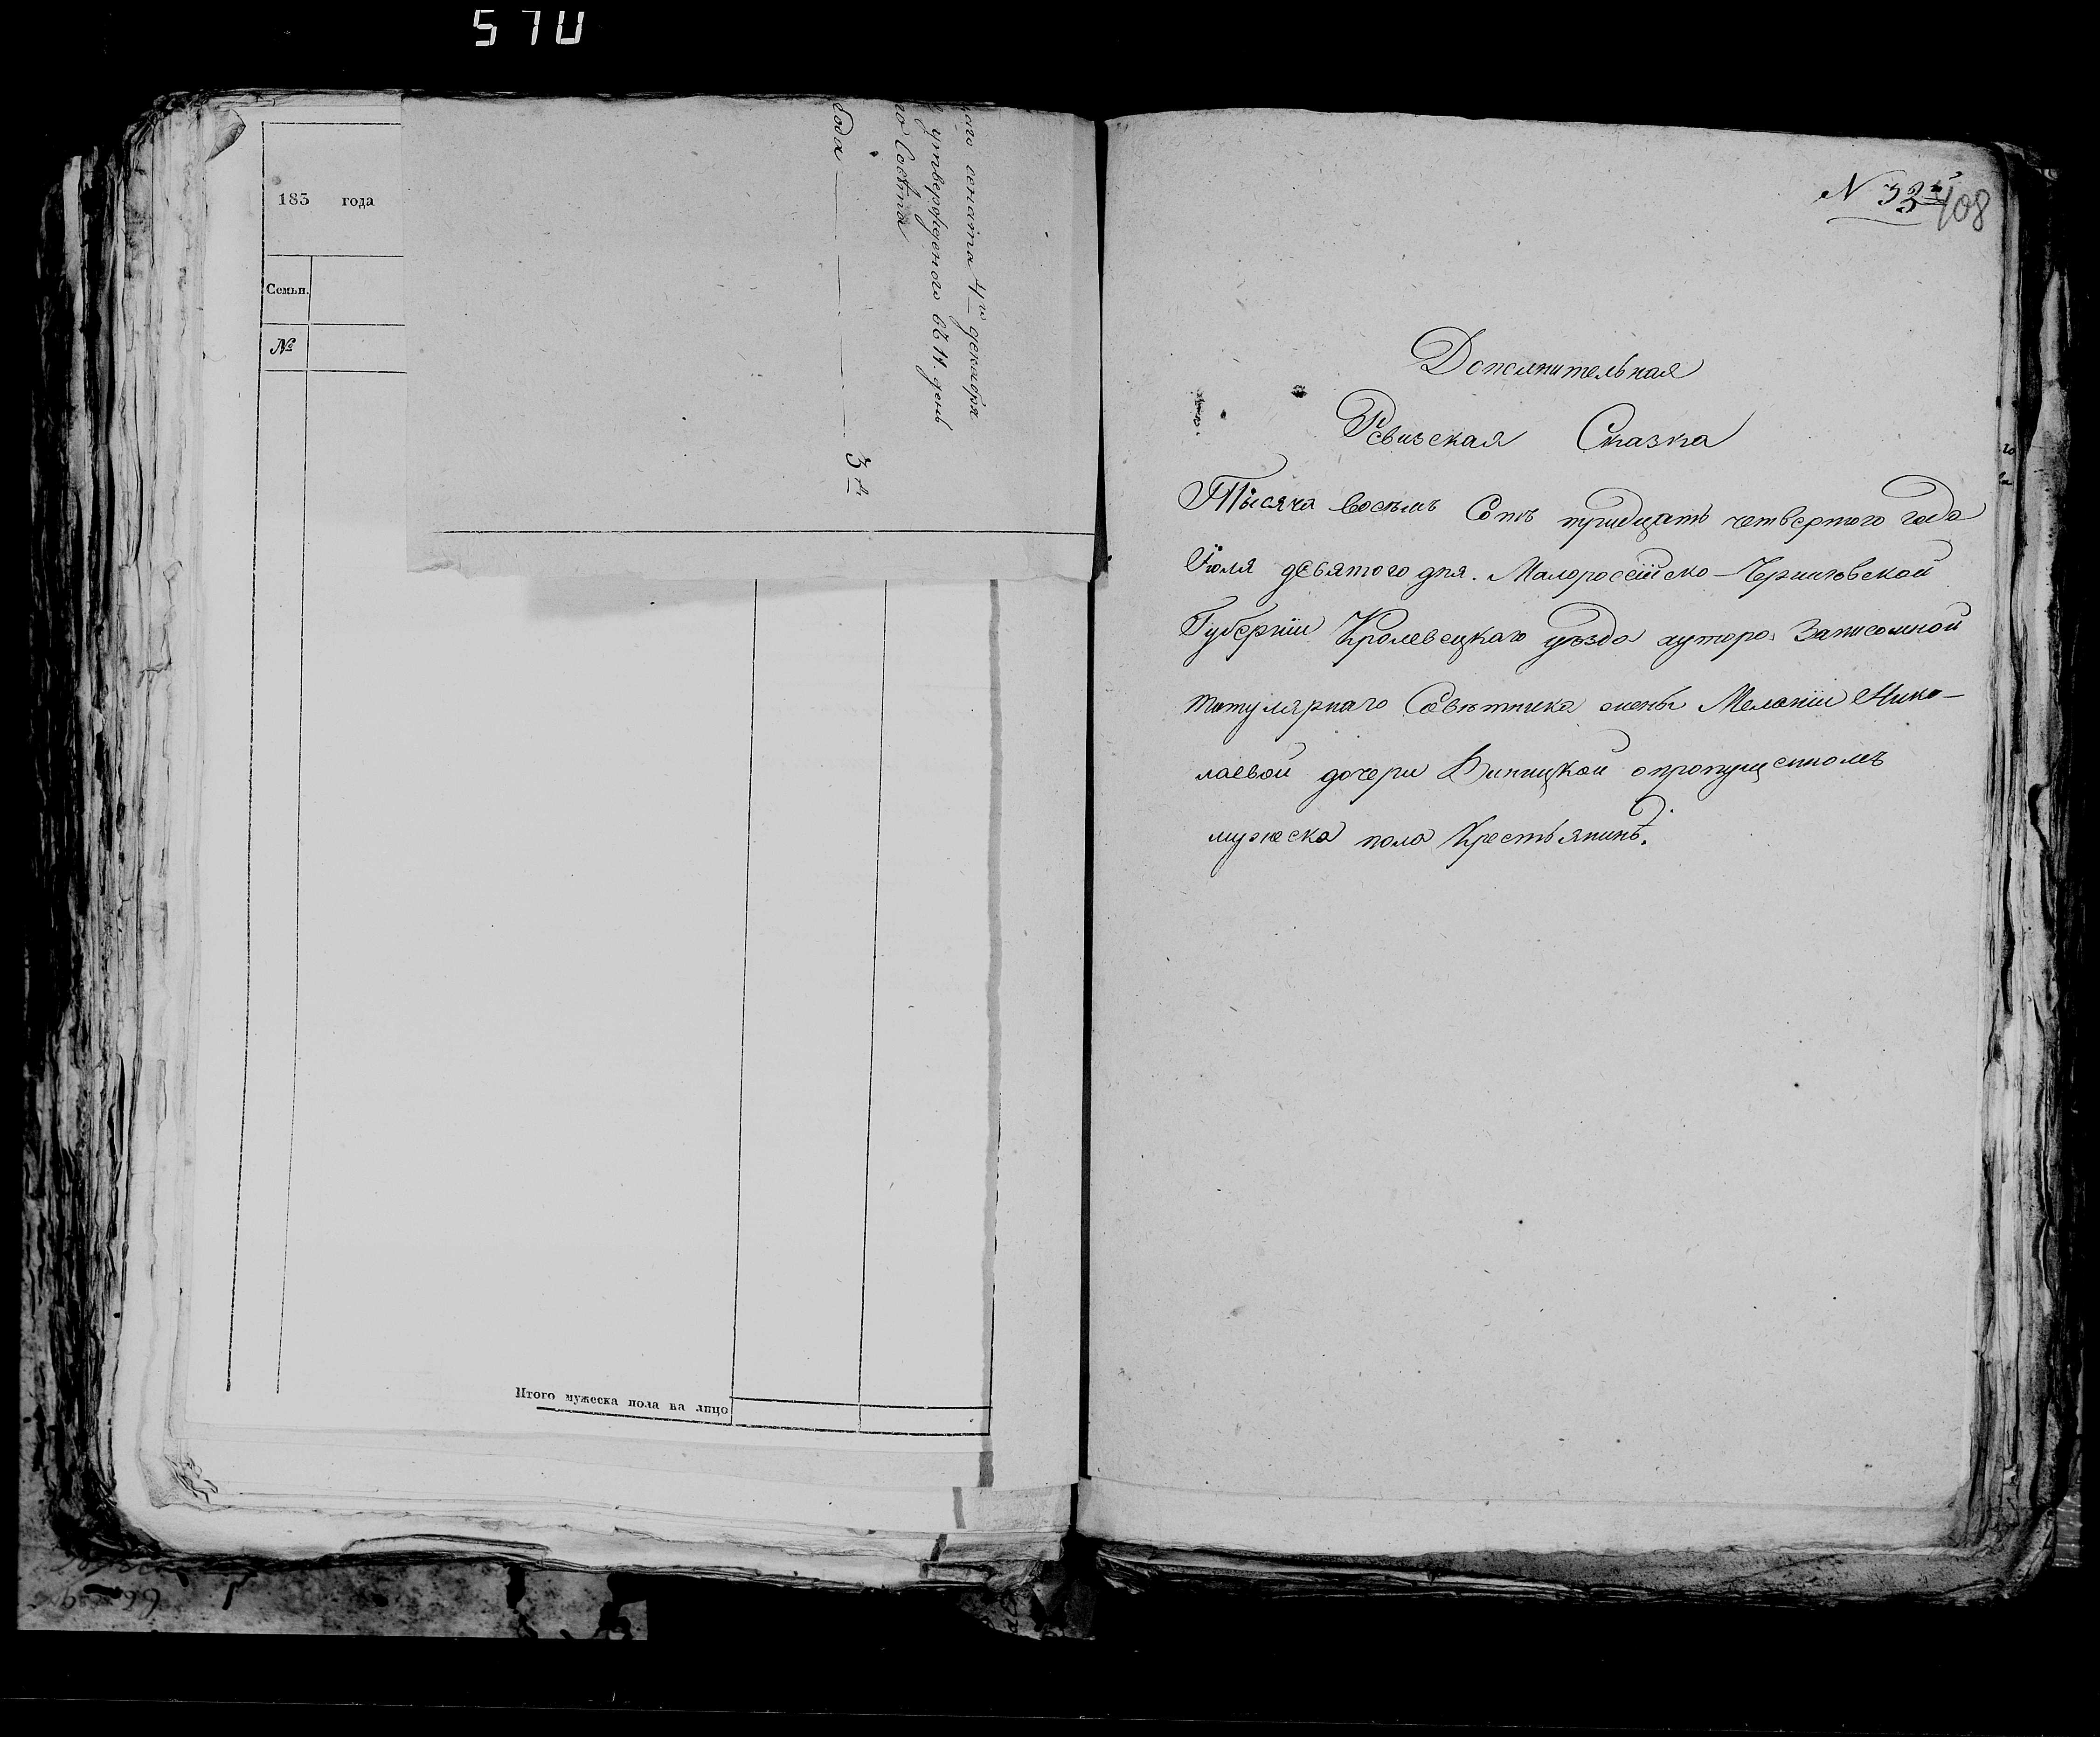 570
185 года
Семьи.
№
сената 4го декабря
утвержденого въ 11. день
го Совѣта
года 3
Итого мужеска пола на лицо
N 33й
408
Дополнительная
Ревизская Сказка
Тысяча восемъ Сотъ тридцать четвертого года
Іюля девятого дня. Малоросійско-Черниговской
Губерніи Кролевецкаго уезда хутора
титулярнаго Совѣтника жены Меланіи Нико-
лаевой дочери Винницкой опропущенномъ
мужеска пола Крестьянинѣ.